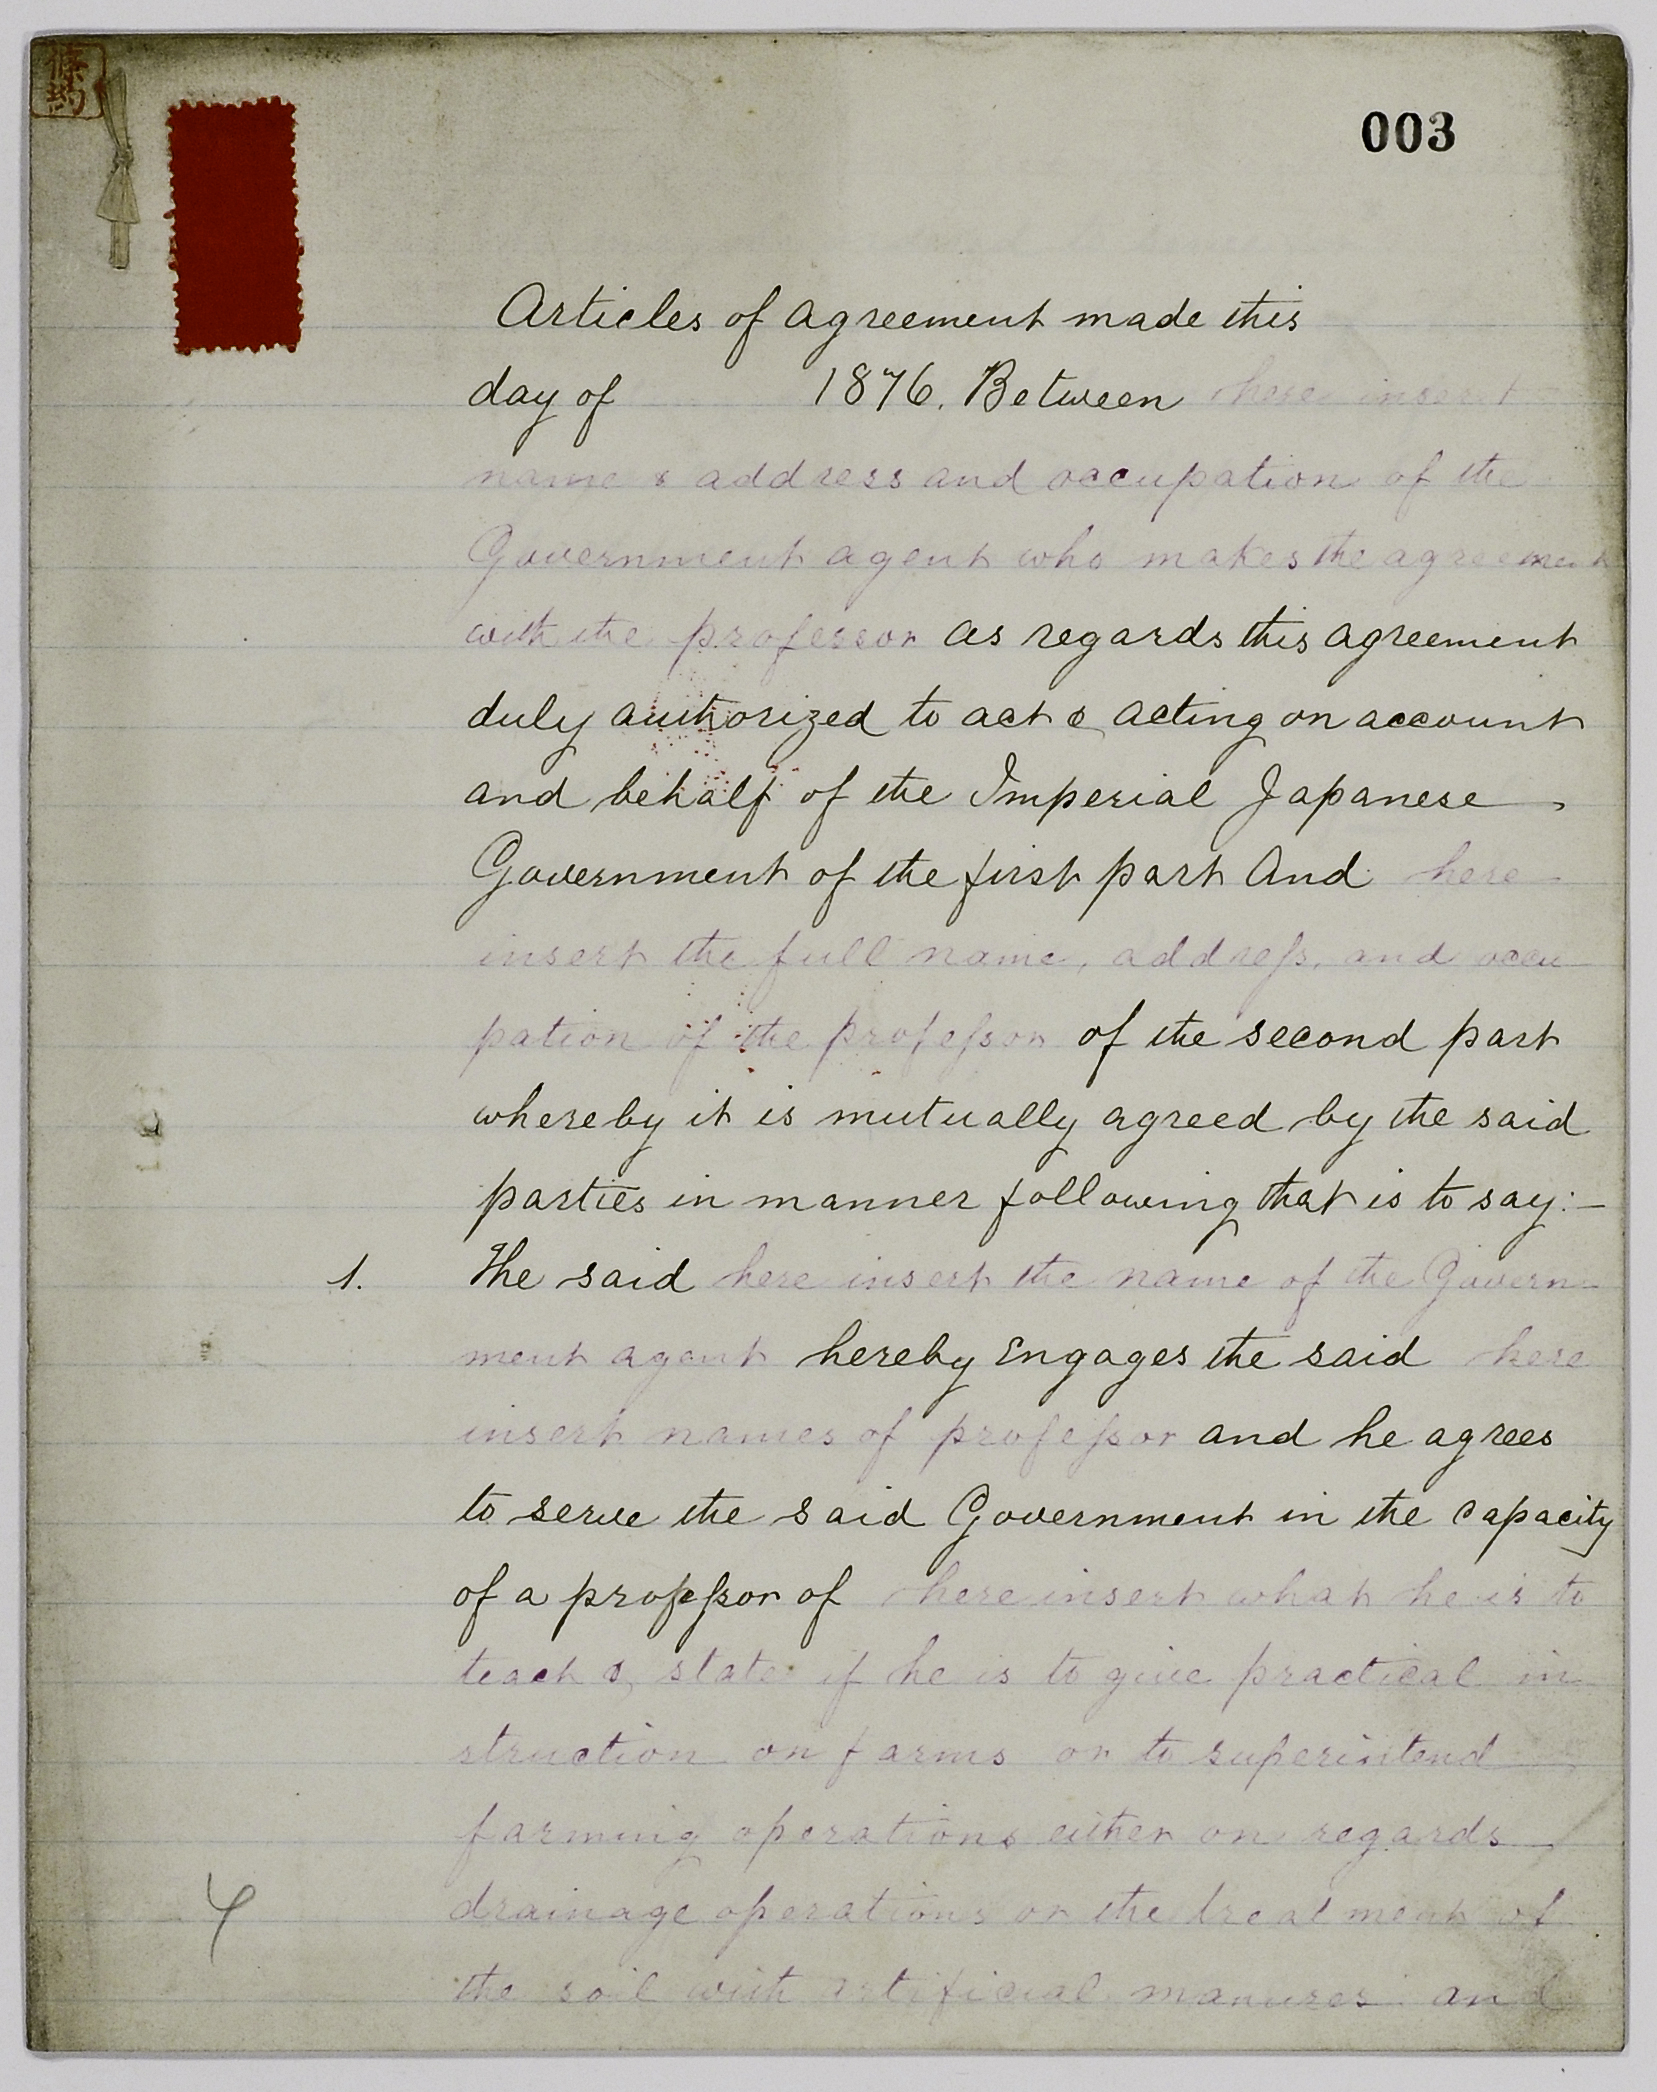 003
Articles of Agreement made this
day of 1876. Between here insert
name & address and occupation of the
Government agent who makes the agreement
with the professor as regards this agreement
duly authorized to act & acting on account
and behalf of the Imperial Japanese
Government of the first part And here
insert the full name, address, and occu
pation of the professor of the second part
whereby it is mutually agreed by the said
parties in manner following that is to say:—
1. The said here insert the name of the Govern-
ment agent hereby Engages the said here
insert names of professor and he agrees
to serve the said Government in the capacity
of a professor of here insert what he is to
teach & state if he is to give practical in
struction on farms or to superintend
farming operations either on regards
drainage operations or the treatment of
the soil with artificial manures and